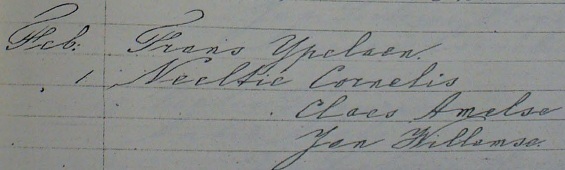 Feb: Frans Ypelaen.
1 Neeltie Cornelis
Claes Amelse
Jan Willemse.